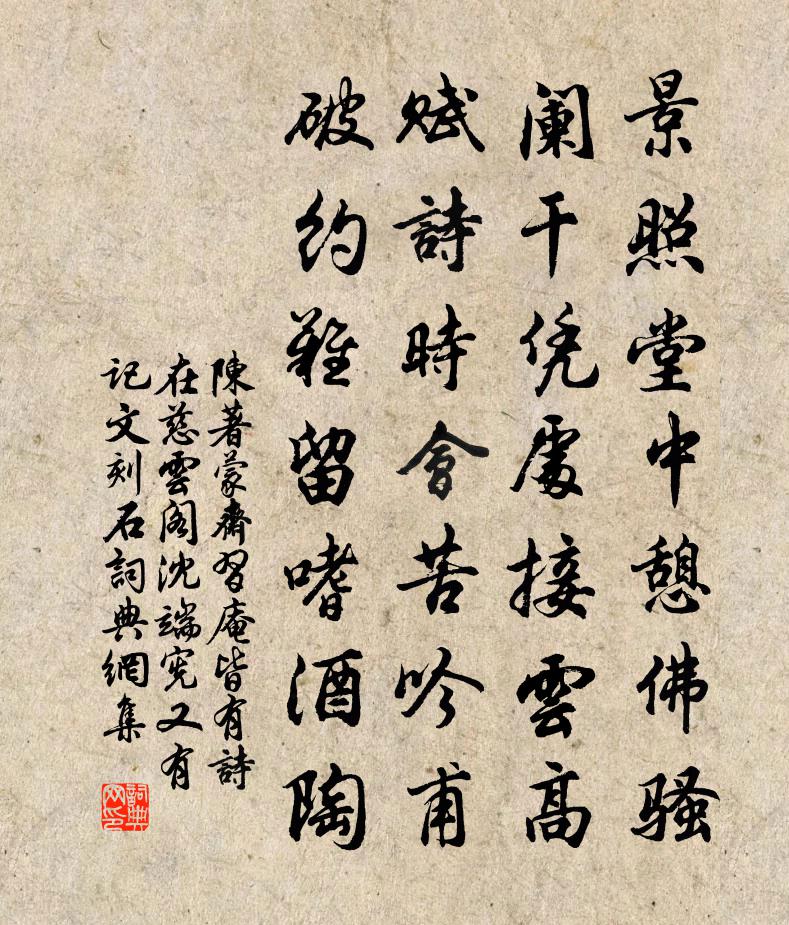 景照堂中憩佛骚
阑干凭處接雲高
赋詩時會苦吟甫
破约難留嗜酒陶
陳著蒙齋習庵皆有詩
在慈雲阁沈端宪又有
记文刻石詞典網集
詞典网印